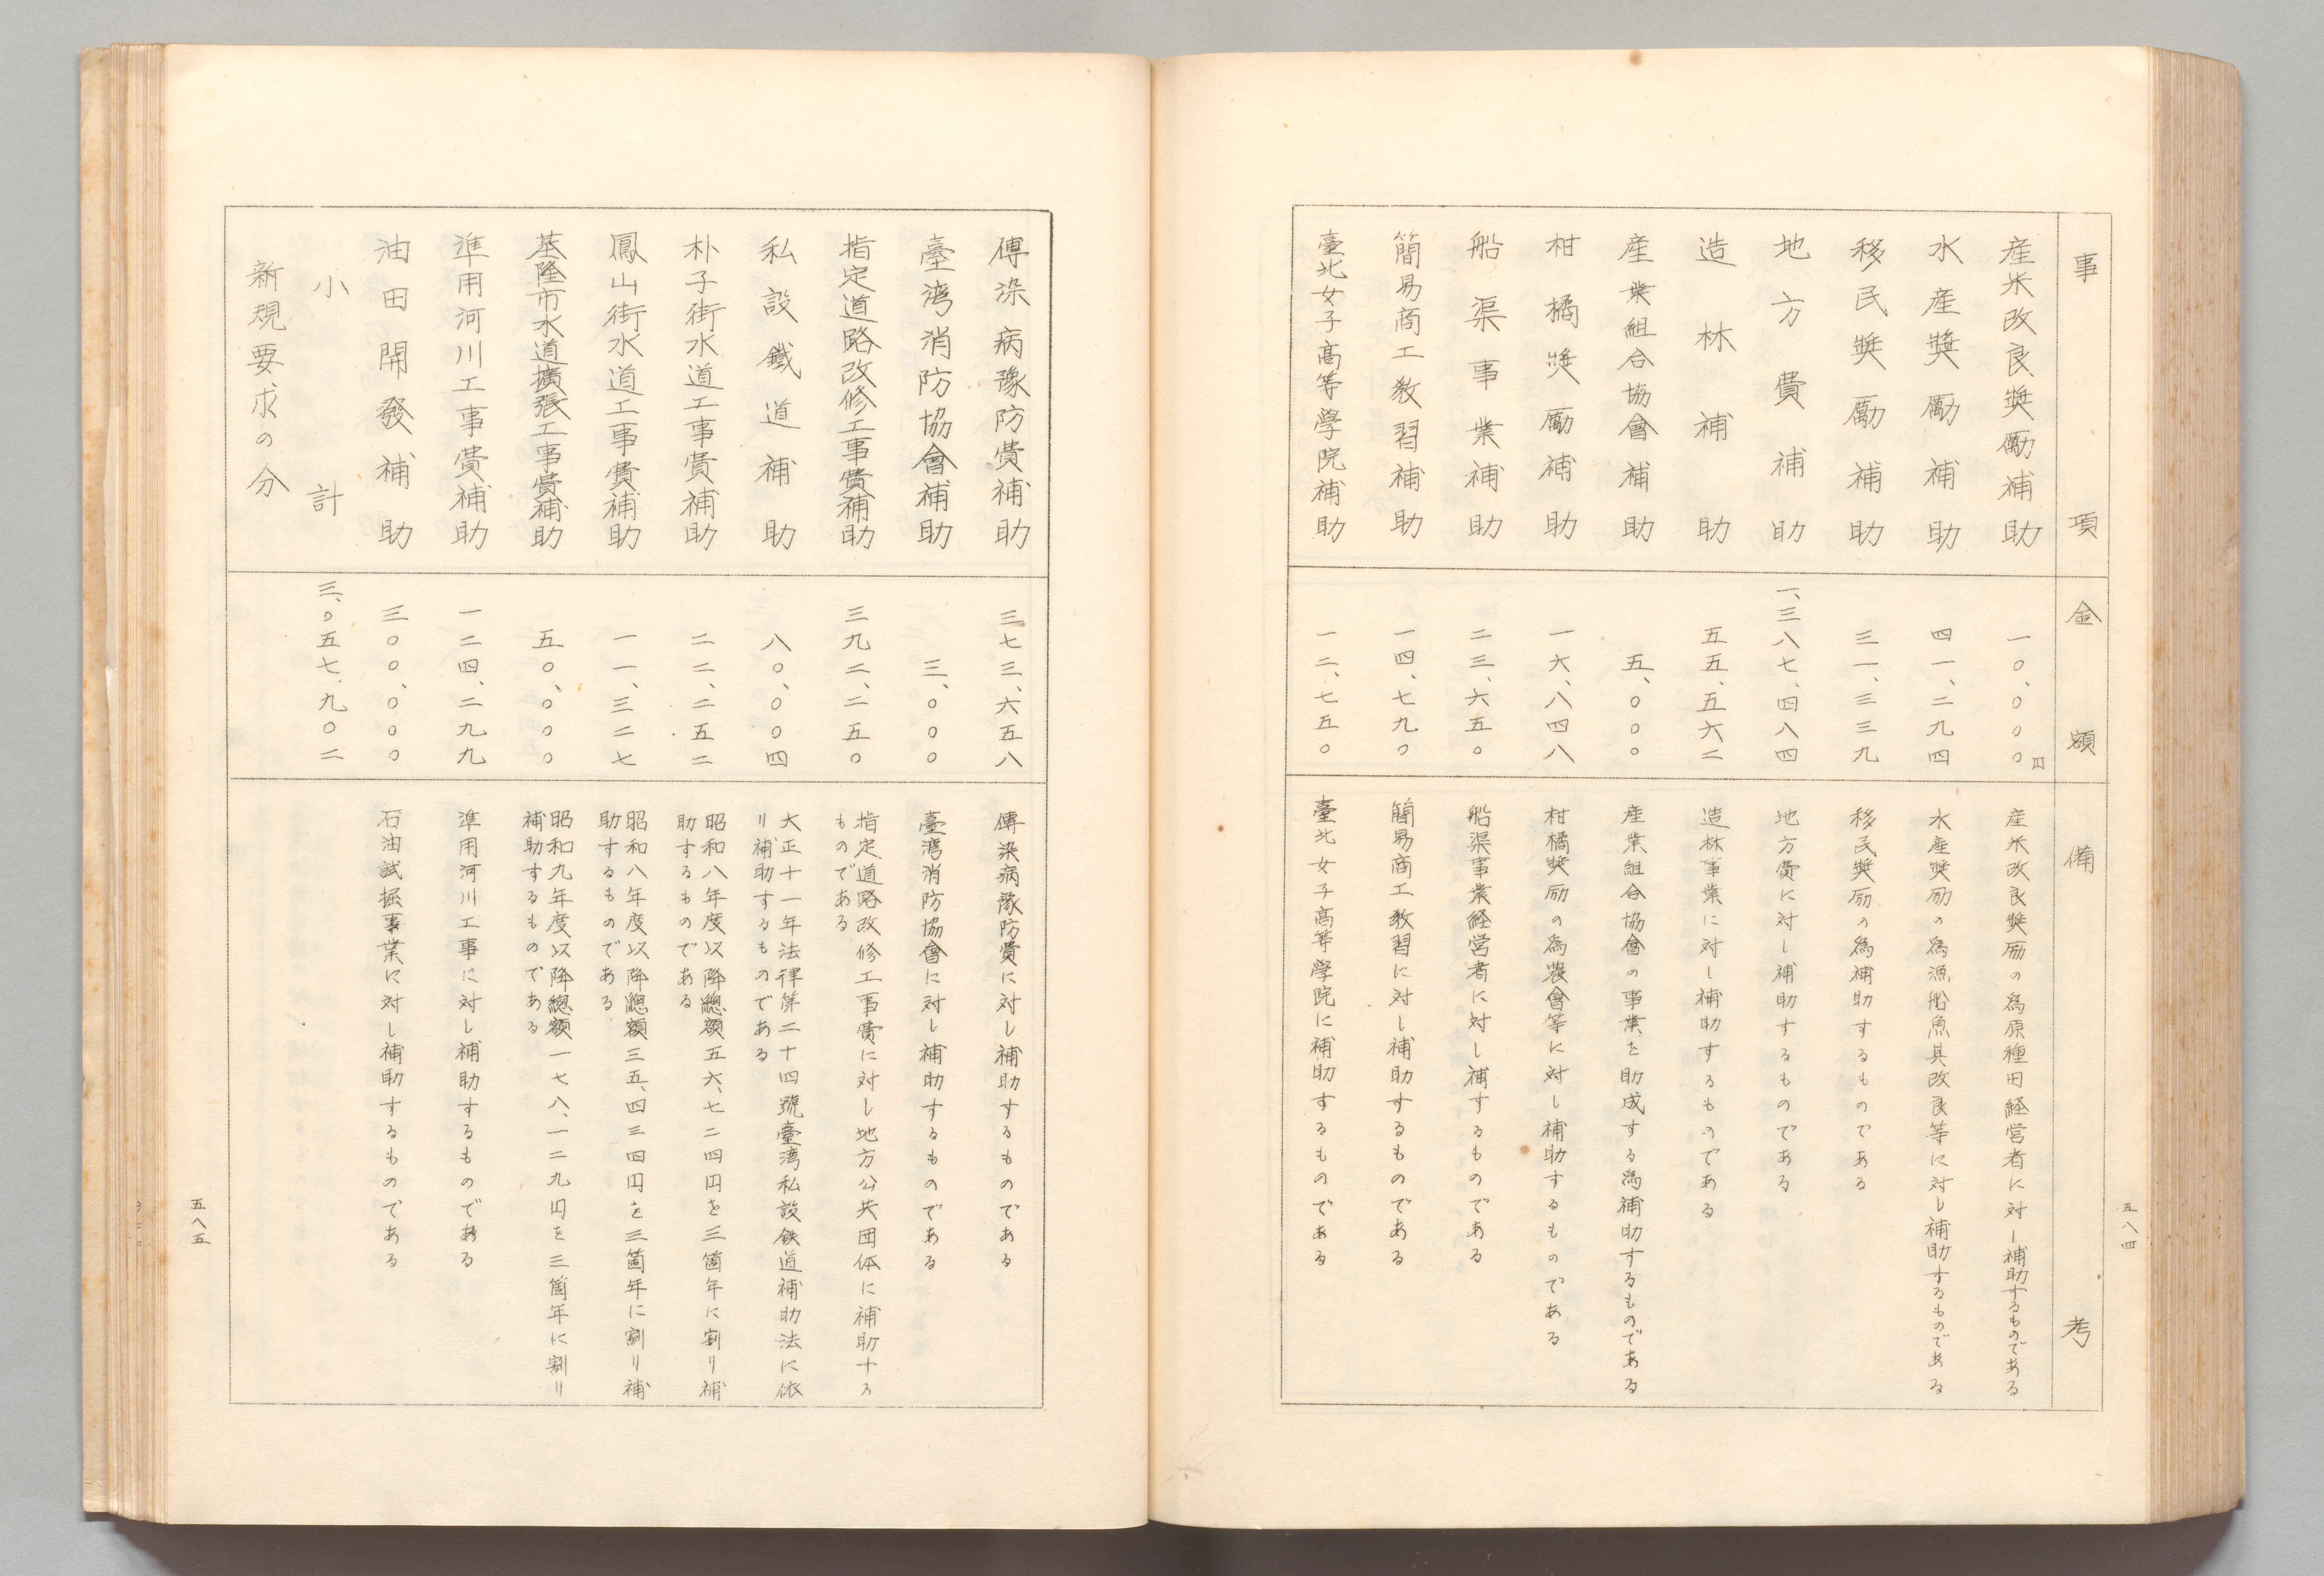 五八四
事項 金額 備考
産米改良奨励補助 一〇、〇〇〇円 産米改良奨励の為原種田経営者に対し補助するものである
水産奨励補助 四一、二九四 水産奨励の為漁船漁具改良等に対し補助するものである
移民奨励補助 三一、三三九 移民奨励の為補助するものである
地方費補助 一、三八七、四八四 地方費に対し補助するものである
造林補助 五五、五六二 造林事業に対し補助するものである
産業組合協會補助 五、〇〇〇 産業組合協會の事業を助成する為補助するものである
柑橘奨励補助 一六、八四八 柑橘奨励の為農會等に対し補助するものである
船渠事業補助 二三、六五〇 船渠事業経営者に対し補するものである
簡易商工教習補助 一四、七九〇 簡易商工教習に対し補助するものである
臺北女子高等學院補助 一二、七五〇 臺北女子高等學院に補助するものである
傳染病豫防費補助 三七三、六五八 傳染病豫防費に対し補助するものである
臺湾消防協會補助 三、〇〇〇 臺湾消防協會に対し補助するものである
指定道路改修工事費補助 三九二、二五〇 指定道路改修工事費に対し地方公共団体に補助する
ものである
私設鐵道補助 八〇、〇〇四 大正十一年法律第二十四號臺湾私設鉄道補助法に依
リ補助するものである
朴子街水道工事費補助 二二、二五二 昭和八年度以降總額五六、七二四円を三箇年に割リ補
助するものである
鳳山街水道工事費補助 一一、三二七 昭和八年度以降總額三五、四三四円を三箇年に割リ補
助するものである
基隆市水道擴張工事費補助 五〇、〇〇〇 昭和九年度以降總額一七八、一二九円を三箇年に割リ
補助するものである
準用河川工事費補助 一二四、二九九 準用河川工事に対し補助するものである
油田開發補助 三〇〇、〇〇〇 石油試掘事業に対し補助するものである
小計 三、〇五七、九〇二
新規要求の分
五八五